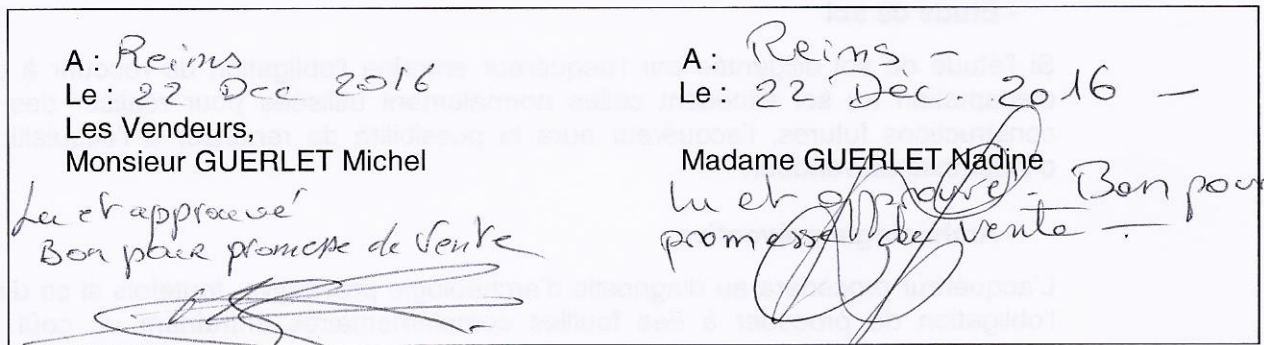 A : Reims
Le : 22 Dec 2016
Les Vendeurs,
Monsieur GUERLET Michel
Lu et approuvé
Bon pour promesse de Vente
A : Reims -
Le : 22 Déc. 2016 -
Madame GUERLET Nadine
lu et approuvé - Bon pour
promesse de vente -